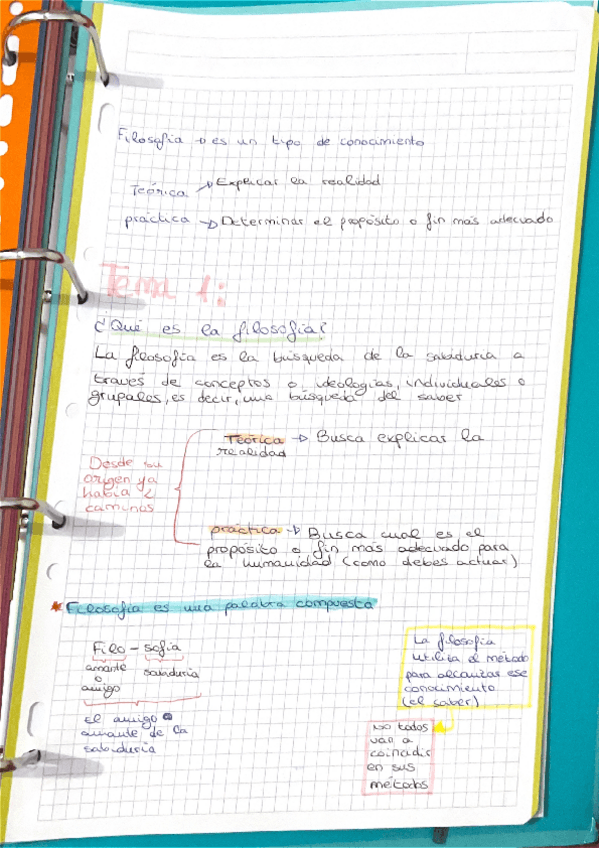 Filosofía → es un tipo de conocimiento
Teórica → Explicar la realidad
práctica → Determinar el propósito o fin más adecuado
Tema 1:
¿Qué es la filosofía?
La filosofía es la búsqueda de la sabiduría a
través de conceptos o ideologías, individuales o
grupales, es decir, una búsqueda del saber
Teórica → Busca explicar la
realidad
Desde su
origen ya
había 2
caminos
práctica → Busca cual es el
propósito o fin más adecuado para
la humanidad (como debes actuar)
* Filosofía es una palabra compuesta
Filo - sofía
amante sabiduría
o
amigo
El amigo o
amante de la
sabiduría
La filosofía
utiliza el método
para alcanzar ese
conocimiento
(el saber)
No todos
van a
coincidir
en sus
métodos